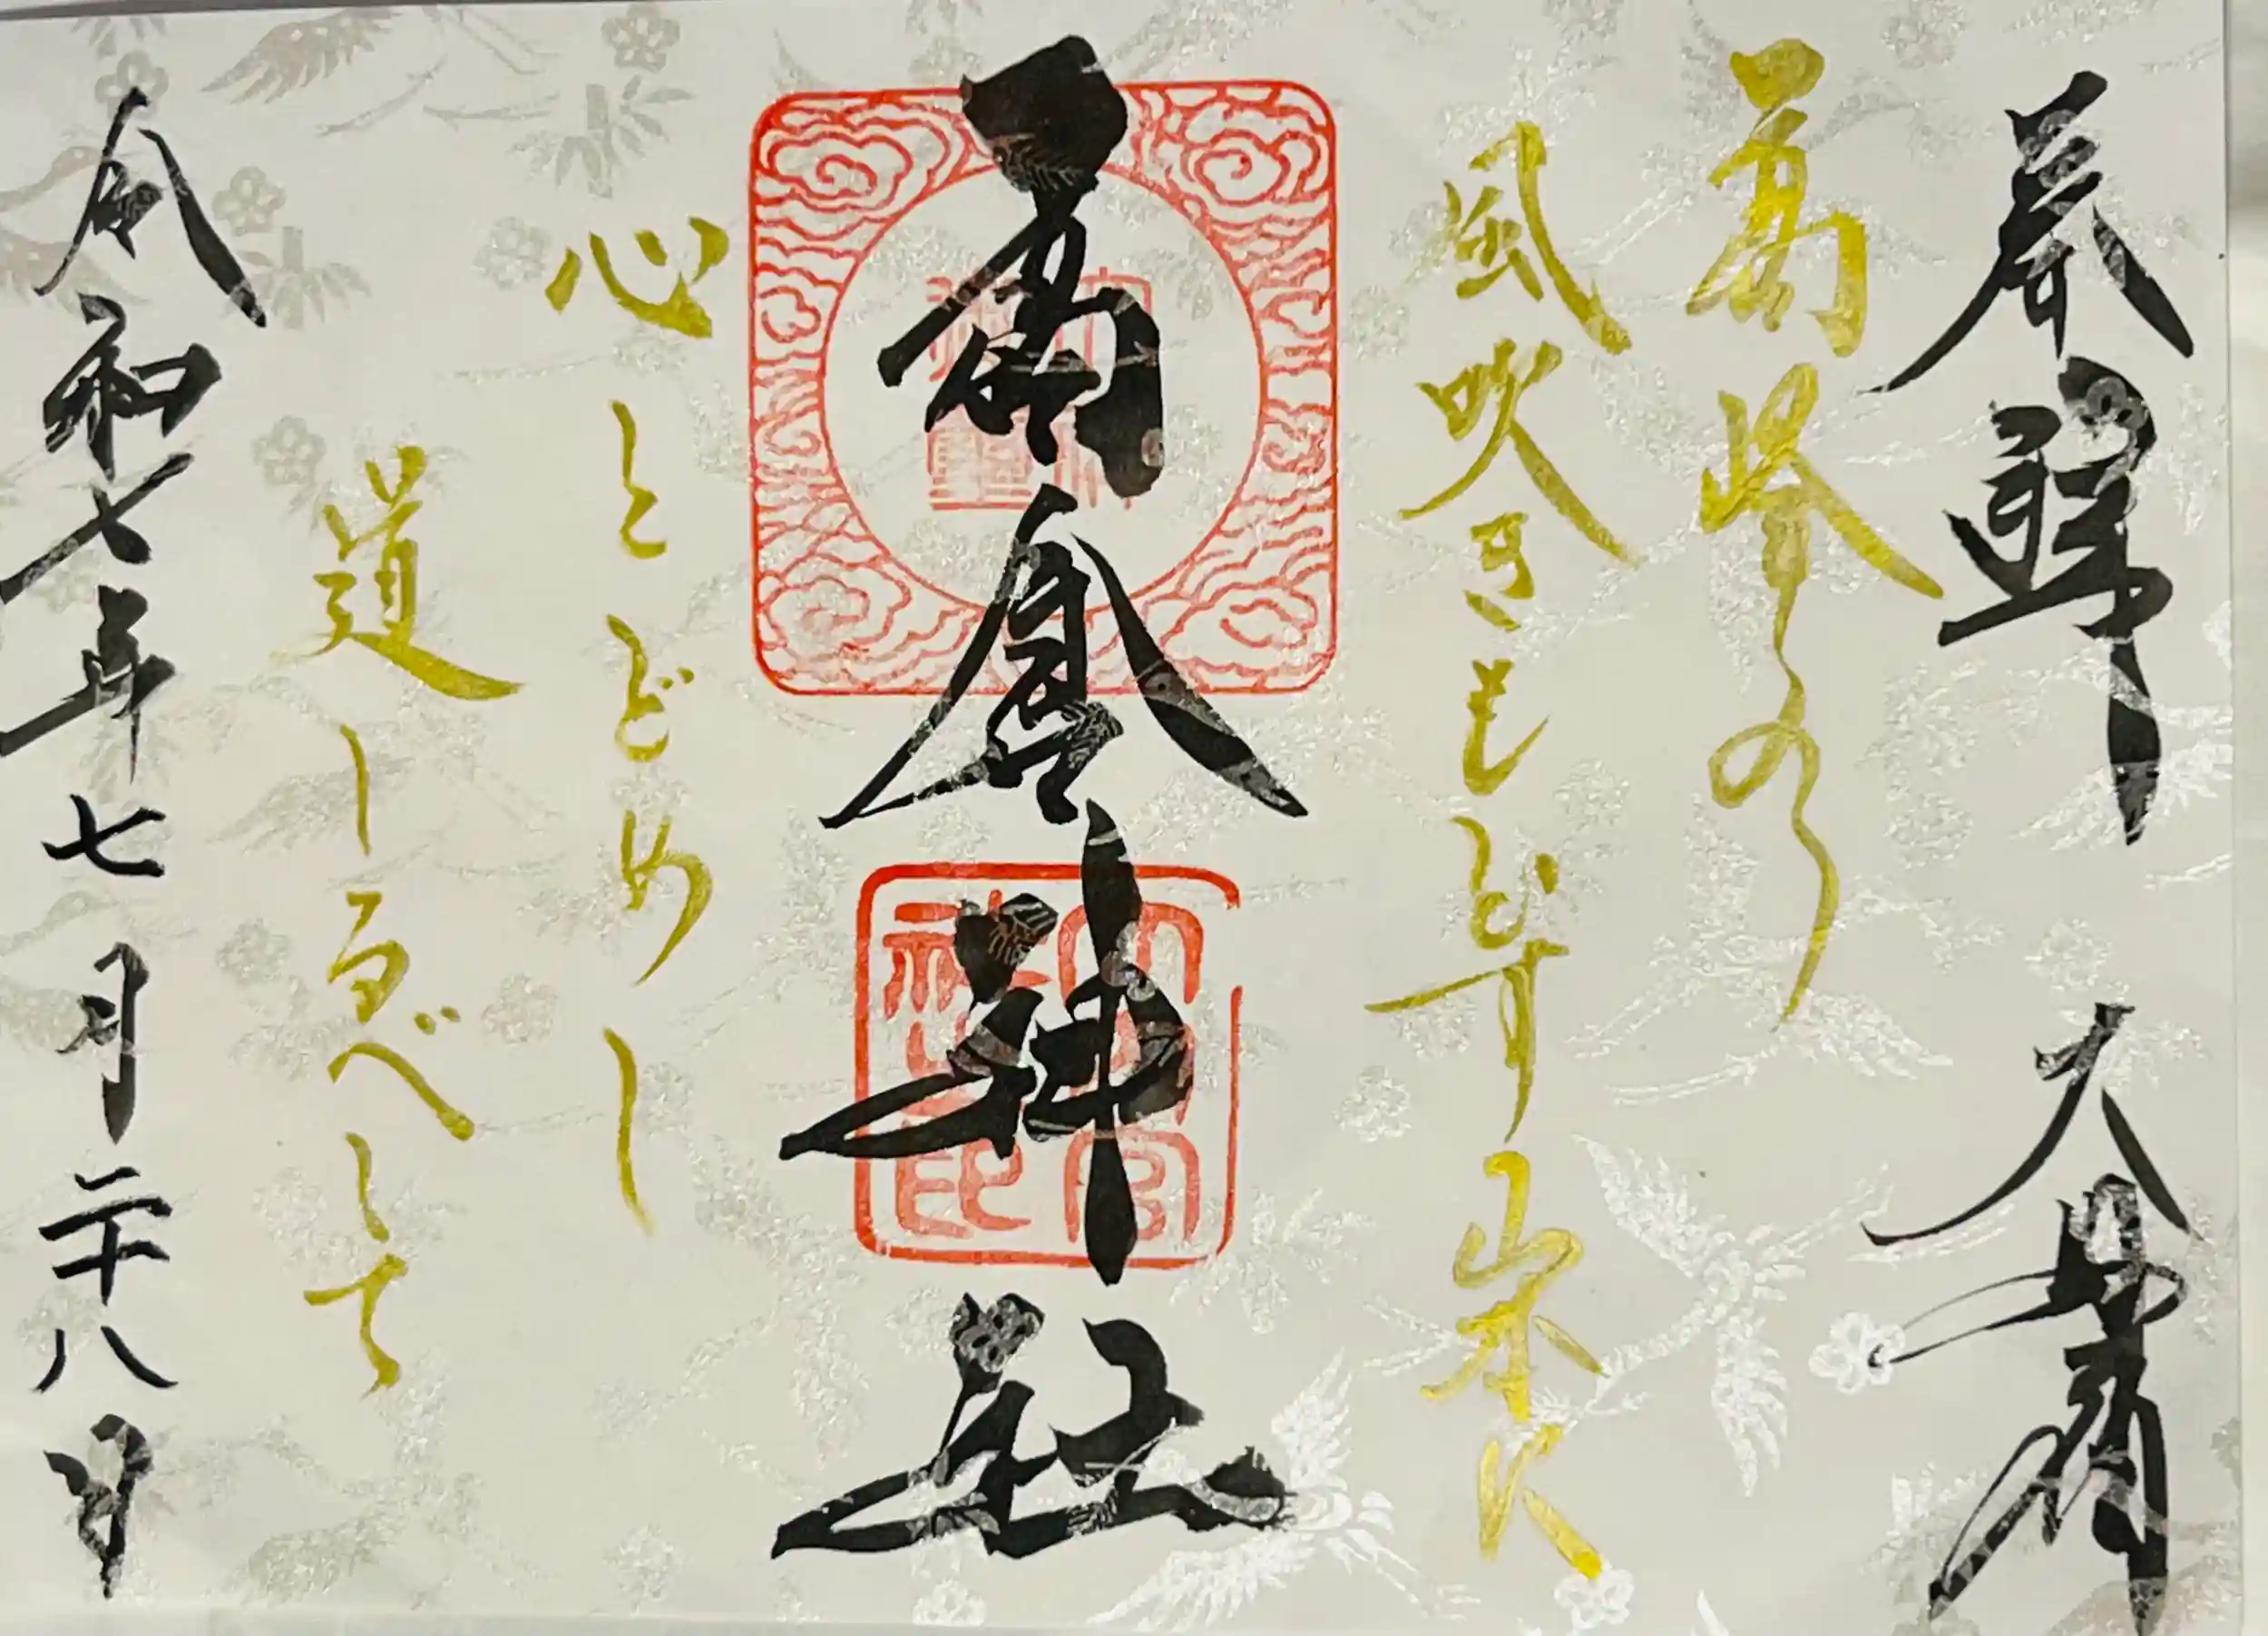 奉拜
高峰の
風吹きもむす山本に
高倉神社
心とどめし
道しるべして
令和七年七月二十八日